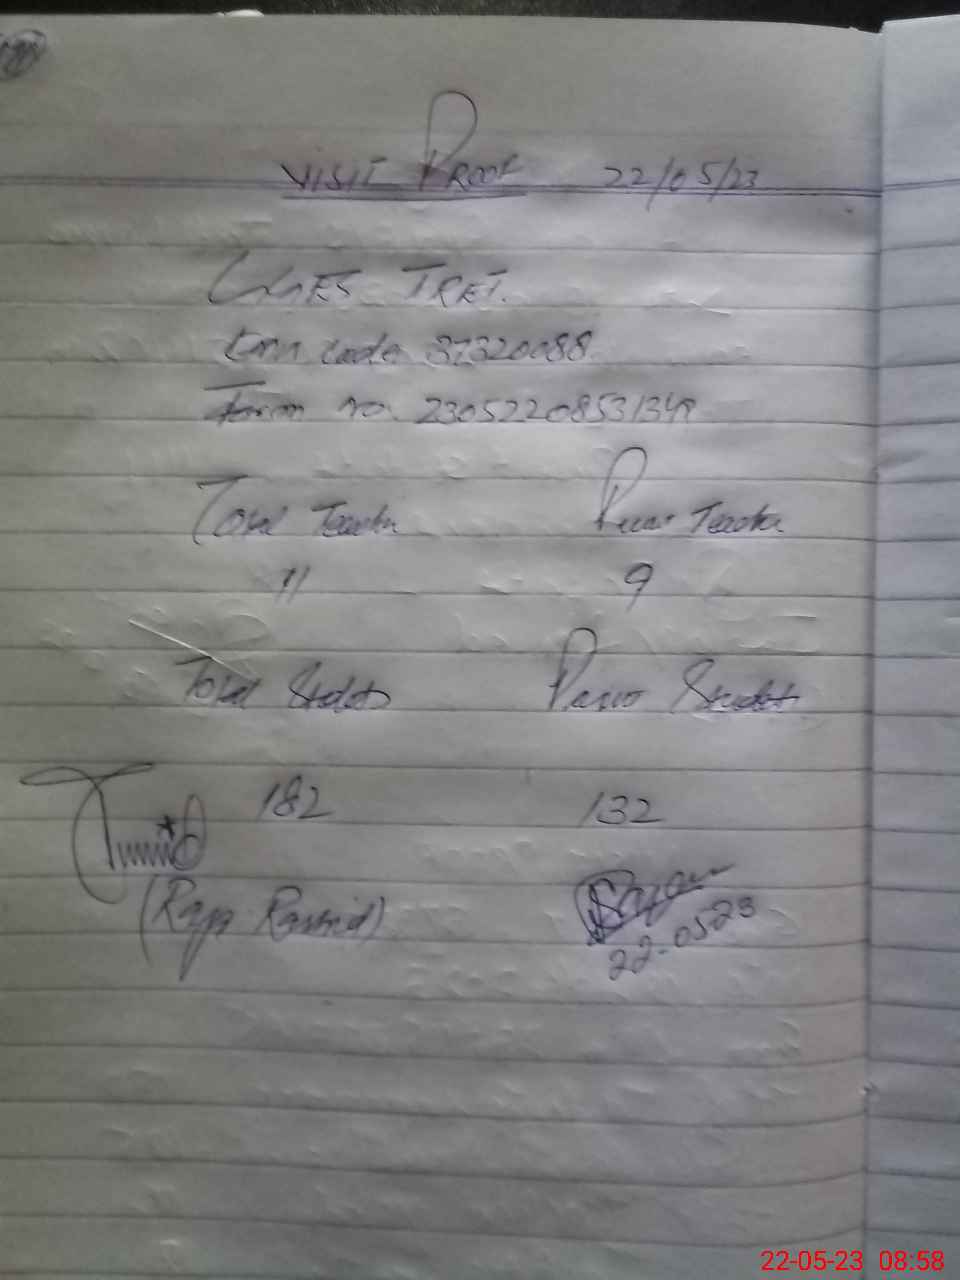 VISIT PROOF 22/05/23
GGES TRET.
Emis code 37320088
Form no. 23052208531348
Total Teacher Presnt Teacher
11 9
Total Students Present Students
182 132
(Raja Rashid)
22-0523
22-05-23 08:58